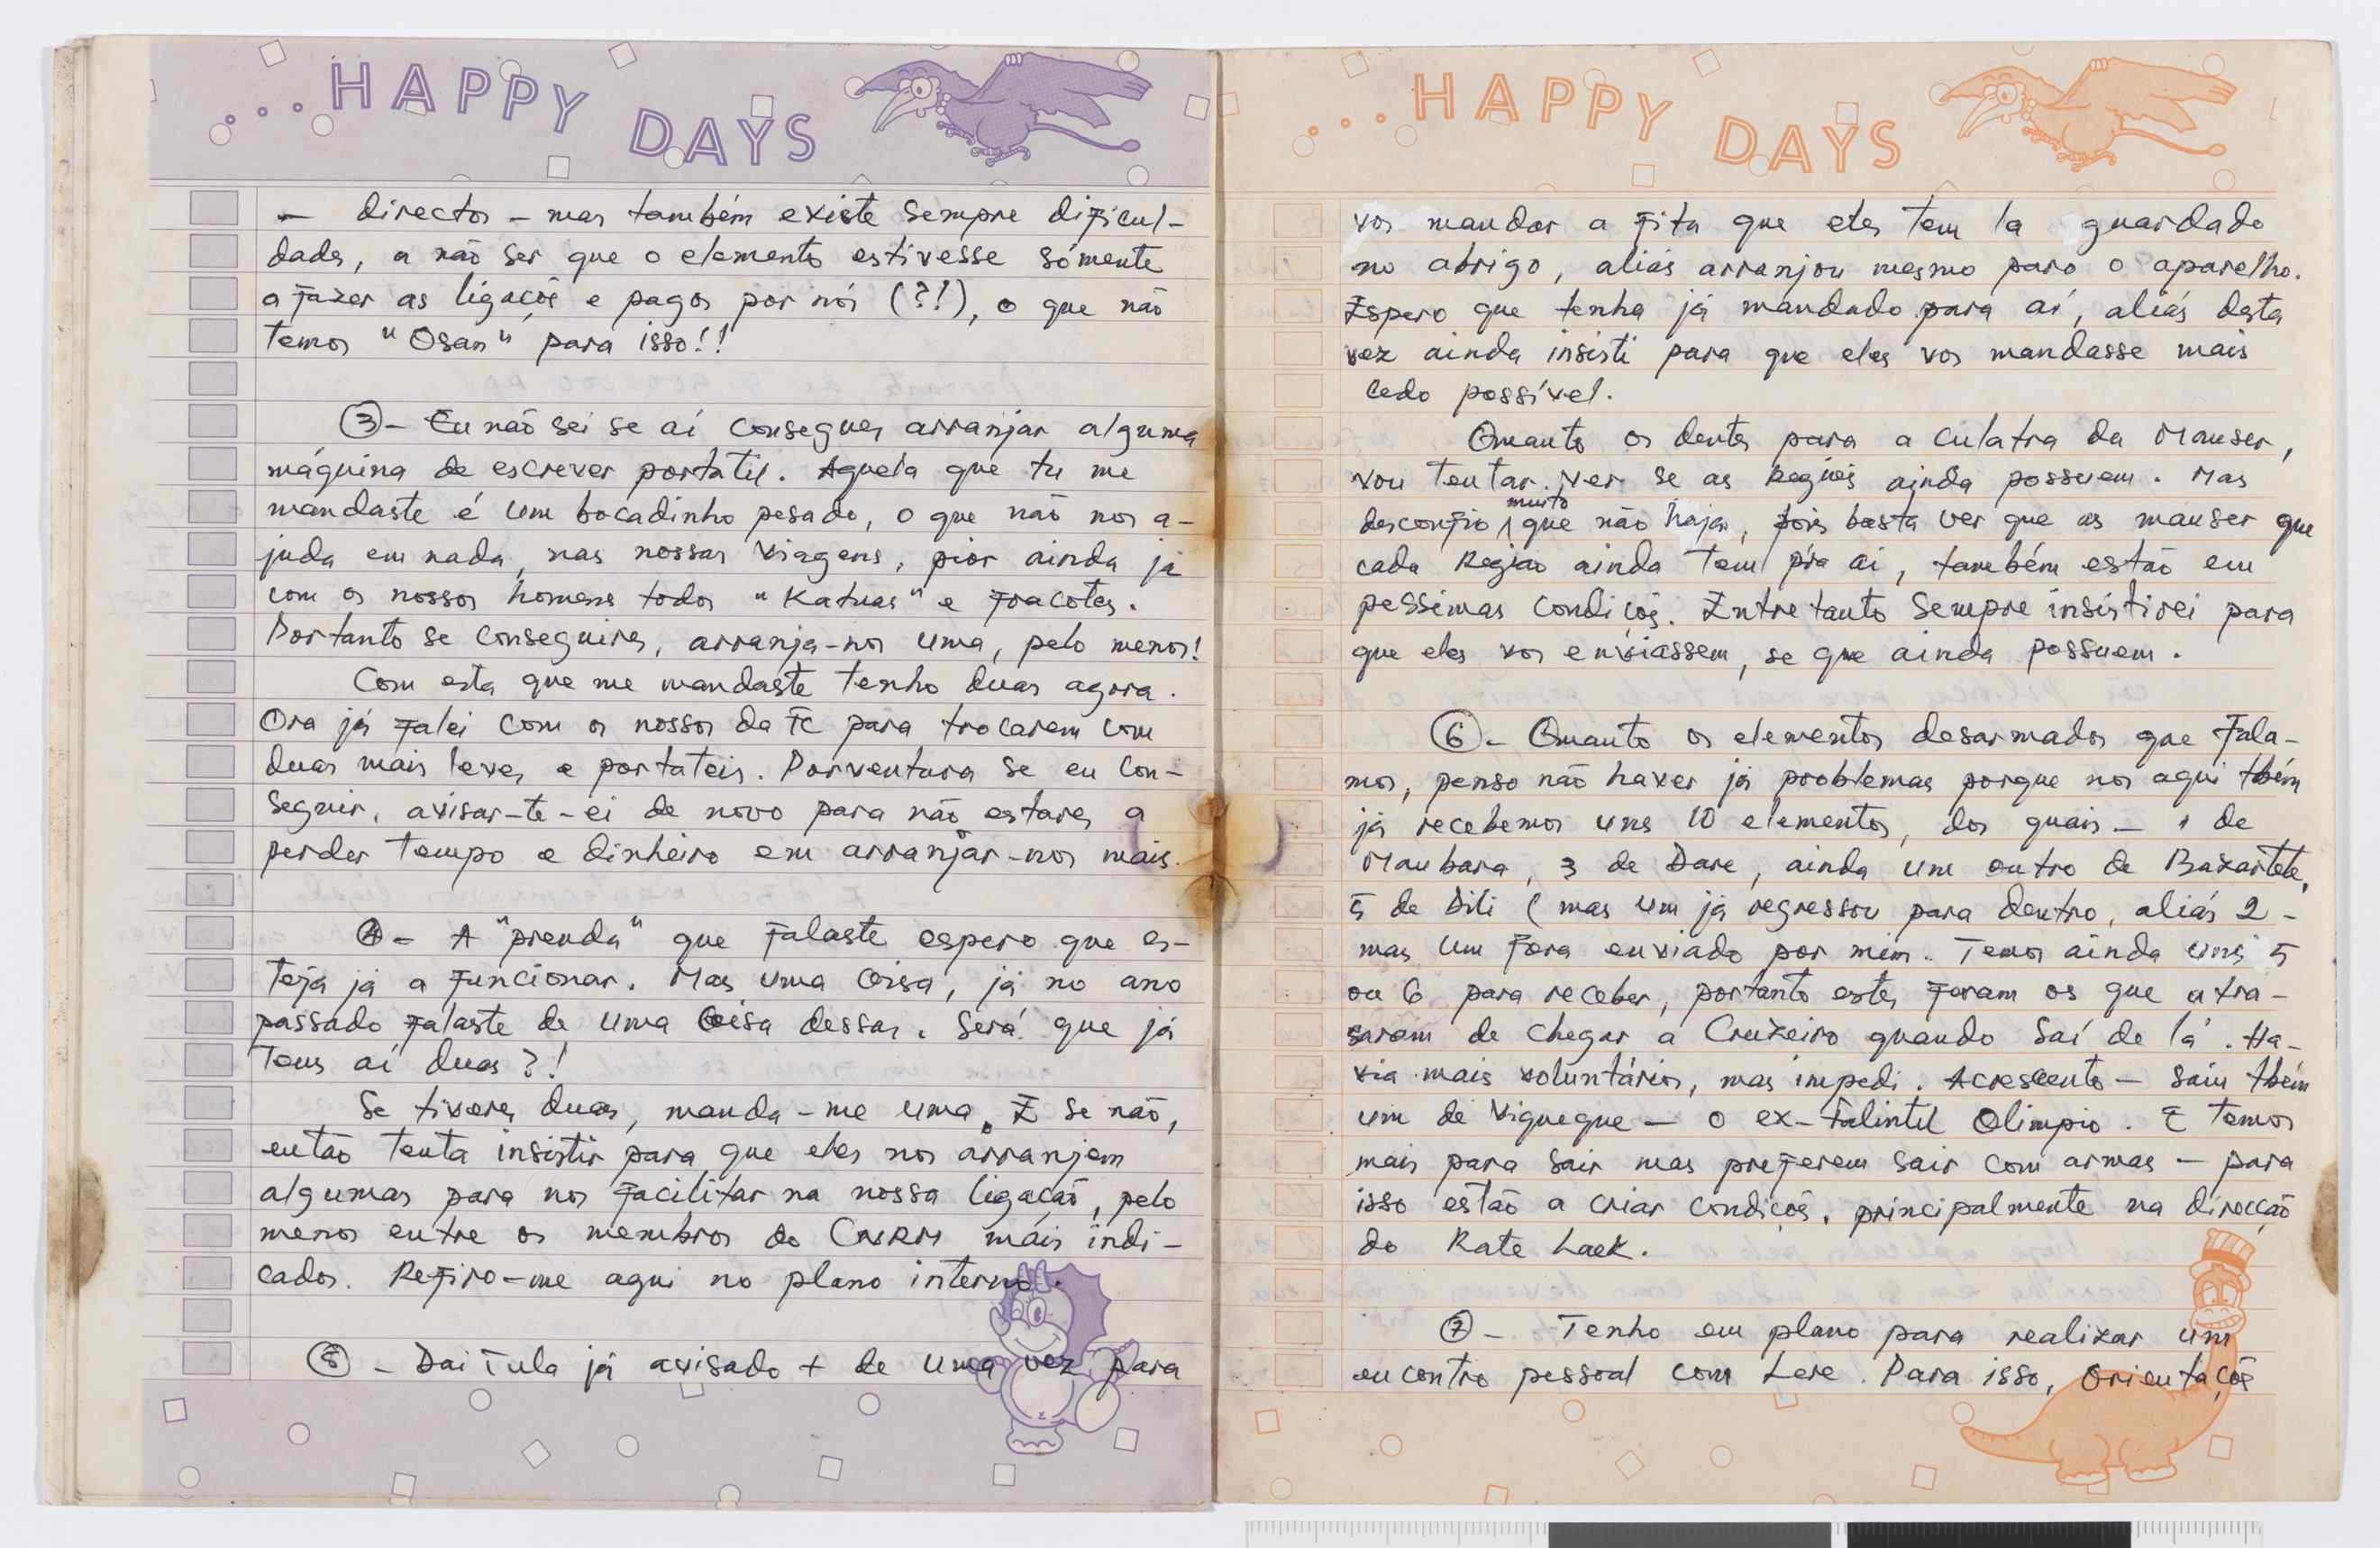 ...HAPPY DAYS
— directos – mas também existe sempre dificul-
dades, a não ser que o elemento estivesse sómente
a fazer as ligaçõs e pagos por nós (?!), o que não
temos "Osan" para isso!!
③ – Eu não sei se aí consegues arranjar alguma
máquina de escrever portatil. Aquela que tu me
mandaste é um bocadinho pesado, o que não nos a-
juda em nada, nas nossas viagens, pior ainda já
com os nossos homens todos "Katuas" e fracotes.
Portanto se conseguires, arranja-nos uma, pelo menos!
Com esta que me mandaste tenho duas agora.
Ora já falei com os nossos da FC para trocarem com
duas mais leves e portateis. Porventura se eu con-
seguir, avisar-te-ei de novo para não estares a
perder tempo e dinheiro em arranjar-nos mais.
④ – A "prenda" que falaste espero que es-
teja já a funcionar. Mas uma coisa, já no ano
passado falaste de uma coisa dessas. Será que já
tens aí duas?!
Se tiveres duas, manda-me uma. E se não,
então tenta insistir para que eles nos arranjem
algumas para nos facilitar na nossa ligação, pelo
menos entre os membros do CNRM máis indi-
cados. Refiro-me aqui no plano interno.
⑤ – DaiTula já avisado + de uma vez para
...HAPPY DAYS
vos mandar a fita que eles tem la guardado
no abrigo, aliás arranjou mesmo para o aparelho.
Espero que tenha já mandado para aí, aliás desta
vez ainda insisti para que eles vos mandasse mais
cedo possível.
Quanto os dentes para a culatra da Mauser,
vou tentar ver se as Regiões ainda possuem. Mas
desconfio muito que não haja, pois basta ver que as mauser que
cada Região ainda tem p'ra aí, também estão em
pessimas condiçõs. Entretanto sempre insistirei para
que eles vos enviassem, se que ainda possuem.
⑥ – Quanto os elementos desarmados que fala-
mos, penso não haver já problemas porque nos aqui tbém
já recebemos uns 10 elementos, dos quais – 1 de
Maubara, 3 de Dare, ainda um outro de Bazartete,
5 de Dili (mas um já regressou para dentro, aliás 2 –
mas um fora enviado por mim. Temos ainda uns 5
ou 6 para receber, portanto estes foram os que atra-
saram de chegar a Cruzeiro quando saí de lá. Ha-
via mais voluntários, mas impedi. Acrescento – saiu tbém
um de Viqueque – o ex-Falintil Olimpio. E temos
mais para sair mas preferem sair com armas – para
isso estão a criar condiçõs, principalmente na direcção
do Kate Laek.
⑦ – Tenho em plano para realizar um
encontro pessoal com Lere. Para isso, orientaçõs